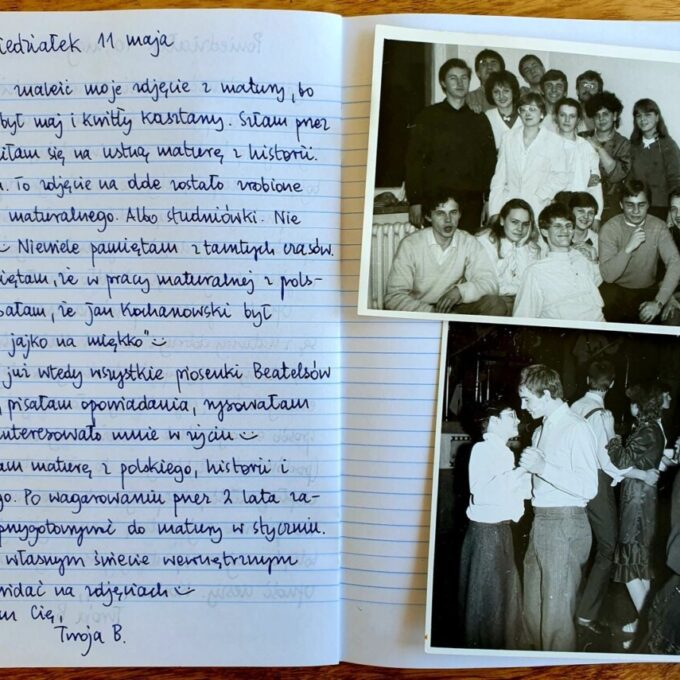 iedziałek 11 maja
znaleźć moje zdjęcie z matury, bo
był maj i kwitły kasztany. Szłam przez
iłam się na ustną maturę z historii.
. To zdjęcie na dole zostało zrobione
maturalnego. Albo studniówki. Nie
Niewiele pamiętam z tamtych czasów.
iętam, że w pracy maturalnej z pols-
sałam, że Jan Kochanowski był
jajko na miękko"
już wtedy wszystkie piosenki Beatelsów
, pisałam opowiadania, rysowałam
nteresowało mnie w życiu
am maturę z polskiego, historii i
go. Po wagarowaniu przez 2 lata za-
przygotowywać do matury w styczniu.
własnym świecie wewnętrznym
widać na zdjęciach
m Cię,
Twoja B.